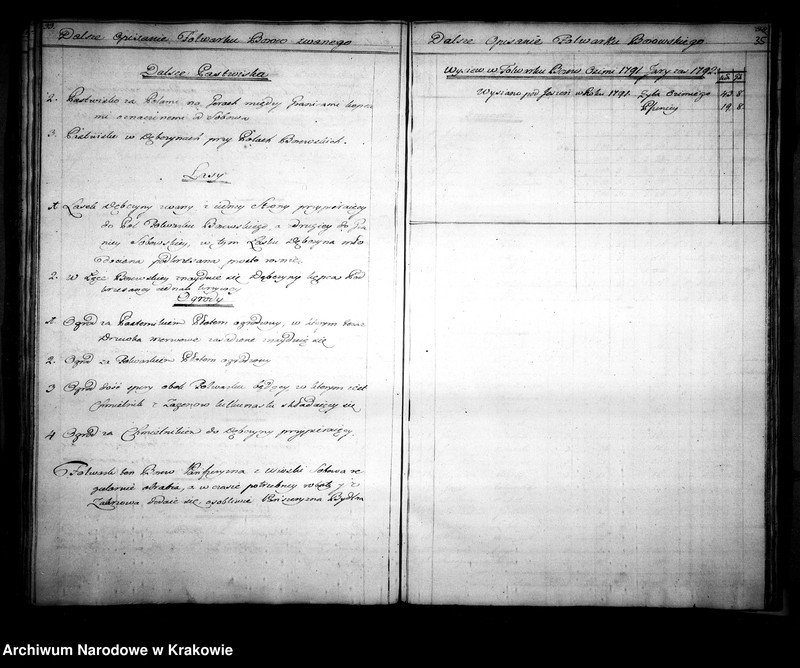 Dalsze Opisanie Folwarku Bnow zwanego
Dalsze Pastwiska
2. Pastwisko za Płotami na Gorach między Granicami kopca
mi oznaczonemi od Sobowa
3. Pastwisko w Dębczynach przy Polach Bnowskich.
Lasy
1. Lasek Dębczyny zwany z iedney Strony przypieraiący
do Pol Folwarku Bnowskiego a z drugiey do Gra
nicy Sobowskiey, w tym Lasku Dębczyna mło
dociana podkrzesana prosto rośnie.
2. w Łęce Bnowskiey znayduie się Dębczyny kępca Pod
krzesaney
Ogrody
1. Ogrod za Pasternikiem Płotem ogrodzony, w ktorym teraz
Drzewka morwowe zasadzone znayduią się
2. Ogrod za Folwarkiem Płotem ogrodzony
3 Ogrod dość spory obok Folwarku będący w ktorym iest
Chmielnik z Zagonow kilkunastu składaiący się
4 Ogrod za Chmielnikiem do Dębczyny przypieraiący.
Folwark ten Bnow Pańszczyzna z Wioski Sobowa re
gularnie obrabia, a w czasie potrzebney roboty y z
Zakrzowa dodaie się, osobliwie Pańszczyzna Bydłna
Dalsze Opisanie Folwarku Bnowskiego
35
Wysiew w Folwarku Bnow Ozimi 1791 Jary zaś 1792.
Wysiano pod Jesień w Roku 1791 Zyta Ozimego 43 8
Pszenicy 19 8
Archiwum Narodowe w Krakowie